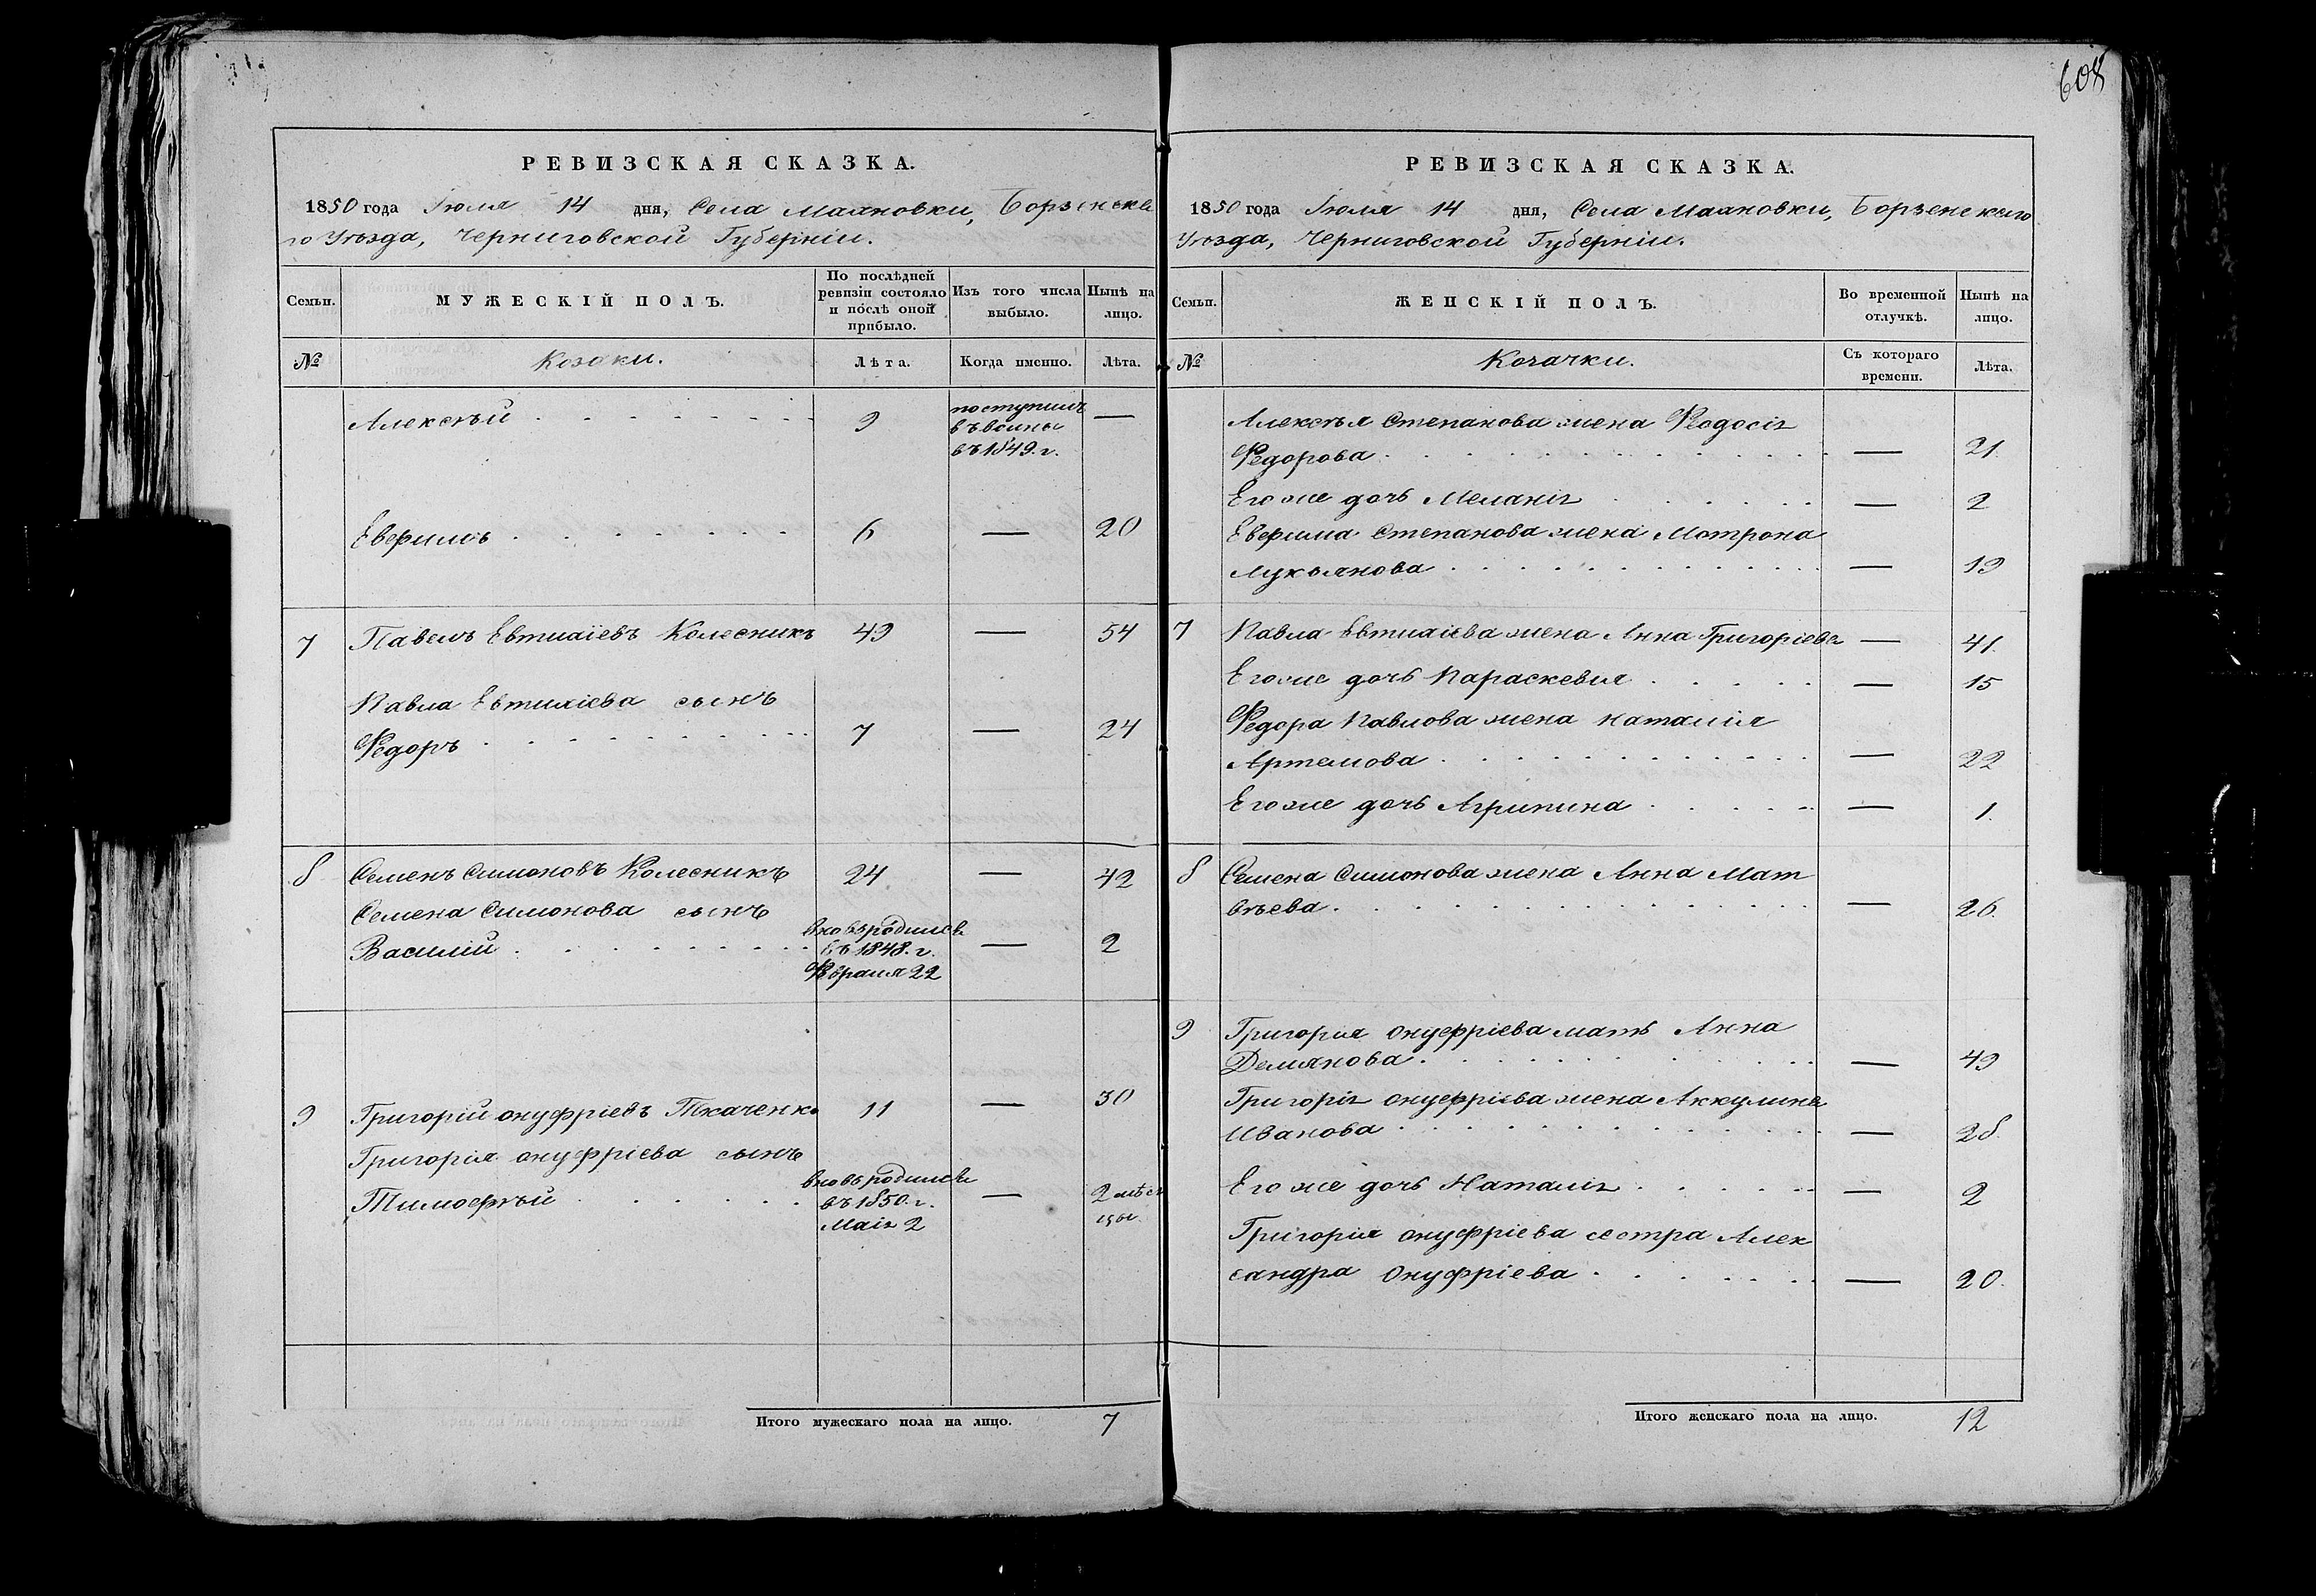 608
РЕВИЗСКАЯ СКАЗКА.
1850 года Іюля 14 дня, Села Маляновки, Борзенска
го Уѣзда, Черниговской Губерніи.
Семьи.
МУЖЕСКІЙ ПОЛЪ.
По послѣдней
ревизіи состояло
и послѣ оной
прибыло.
Изъ того числа
выбыло.
Нынѣ на
лицо.
№
Козаки.
Лѣта.
Когда именно.
Лѣта.
Алексѣй
9
поступилъ
въ воины
въ 1849. г.
—
Евфимъ
6
—
20
7
Павелъ Евтихіевъ Колесникъ
49
—
54
Павла Евтихіева сынъ
Федоръ
7
—
24
8
Семенъ Симоновъ Колесникъ
24
—
42
Семена Симонова сынъ
Василій
вновьродился
въ 1848. г.
Февраля 22
—
2
9
Григорій Онуфріевъ Ткаченко
11
—
30
Григорія Онуфріева сынъ
Тимофѣй
вновьродился
въ 1850. г.
Маія 2
—
2 мѣся
цы.
Итого мужескаго пола на лицо.
7
РЕВИЗСКАЯ СКАЗКА.
1850 года Іюля 14 дня, Села Маляновки, Борзенскаго
Уѣзда, Черниговской Губерніи.
Семьи.
ЖЕНСКІЙ ПОЛЪ.
Во временной
отлучкѣ.
Нынѣ на
лицо.
№
Козачки.
Съ котораго
времени.
Лѣта.
Алексѣя Степанова жена Феодосія
Федорова
—
21.
Его же дочь Меланія
—
2
Евфима Степанова жена Мотрона
Лукьянова
—
19
7
Павла Евтихіева жена Анна Григоріева
—
41.
Его же дочь Параскевия
—
15
Федора Павлова жена Наталія
Артемова
—
22
Его же дочь Агрипина
—
1.
8
Семена Симонова жена Анна Мат
вѣева
—
26.
9
Григория Онуфріева мать Анна
Демянова
—
49
Григорія Онуфріева жена Аккулина
Иванова
—
28.
Его же дочь Наталія
—
2
Григорія Онуфріева сестра Алек
сандра Онуфріева
—
20.
Итого женскаго пола на лицо.
12